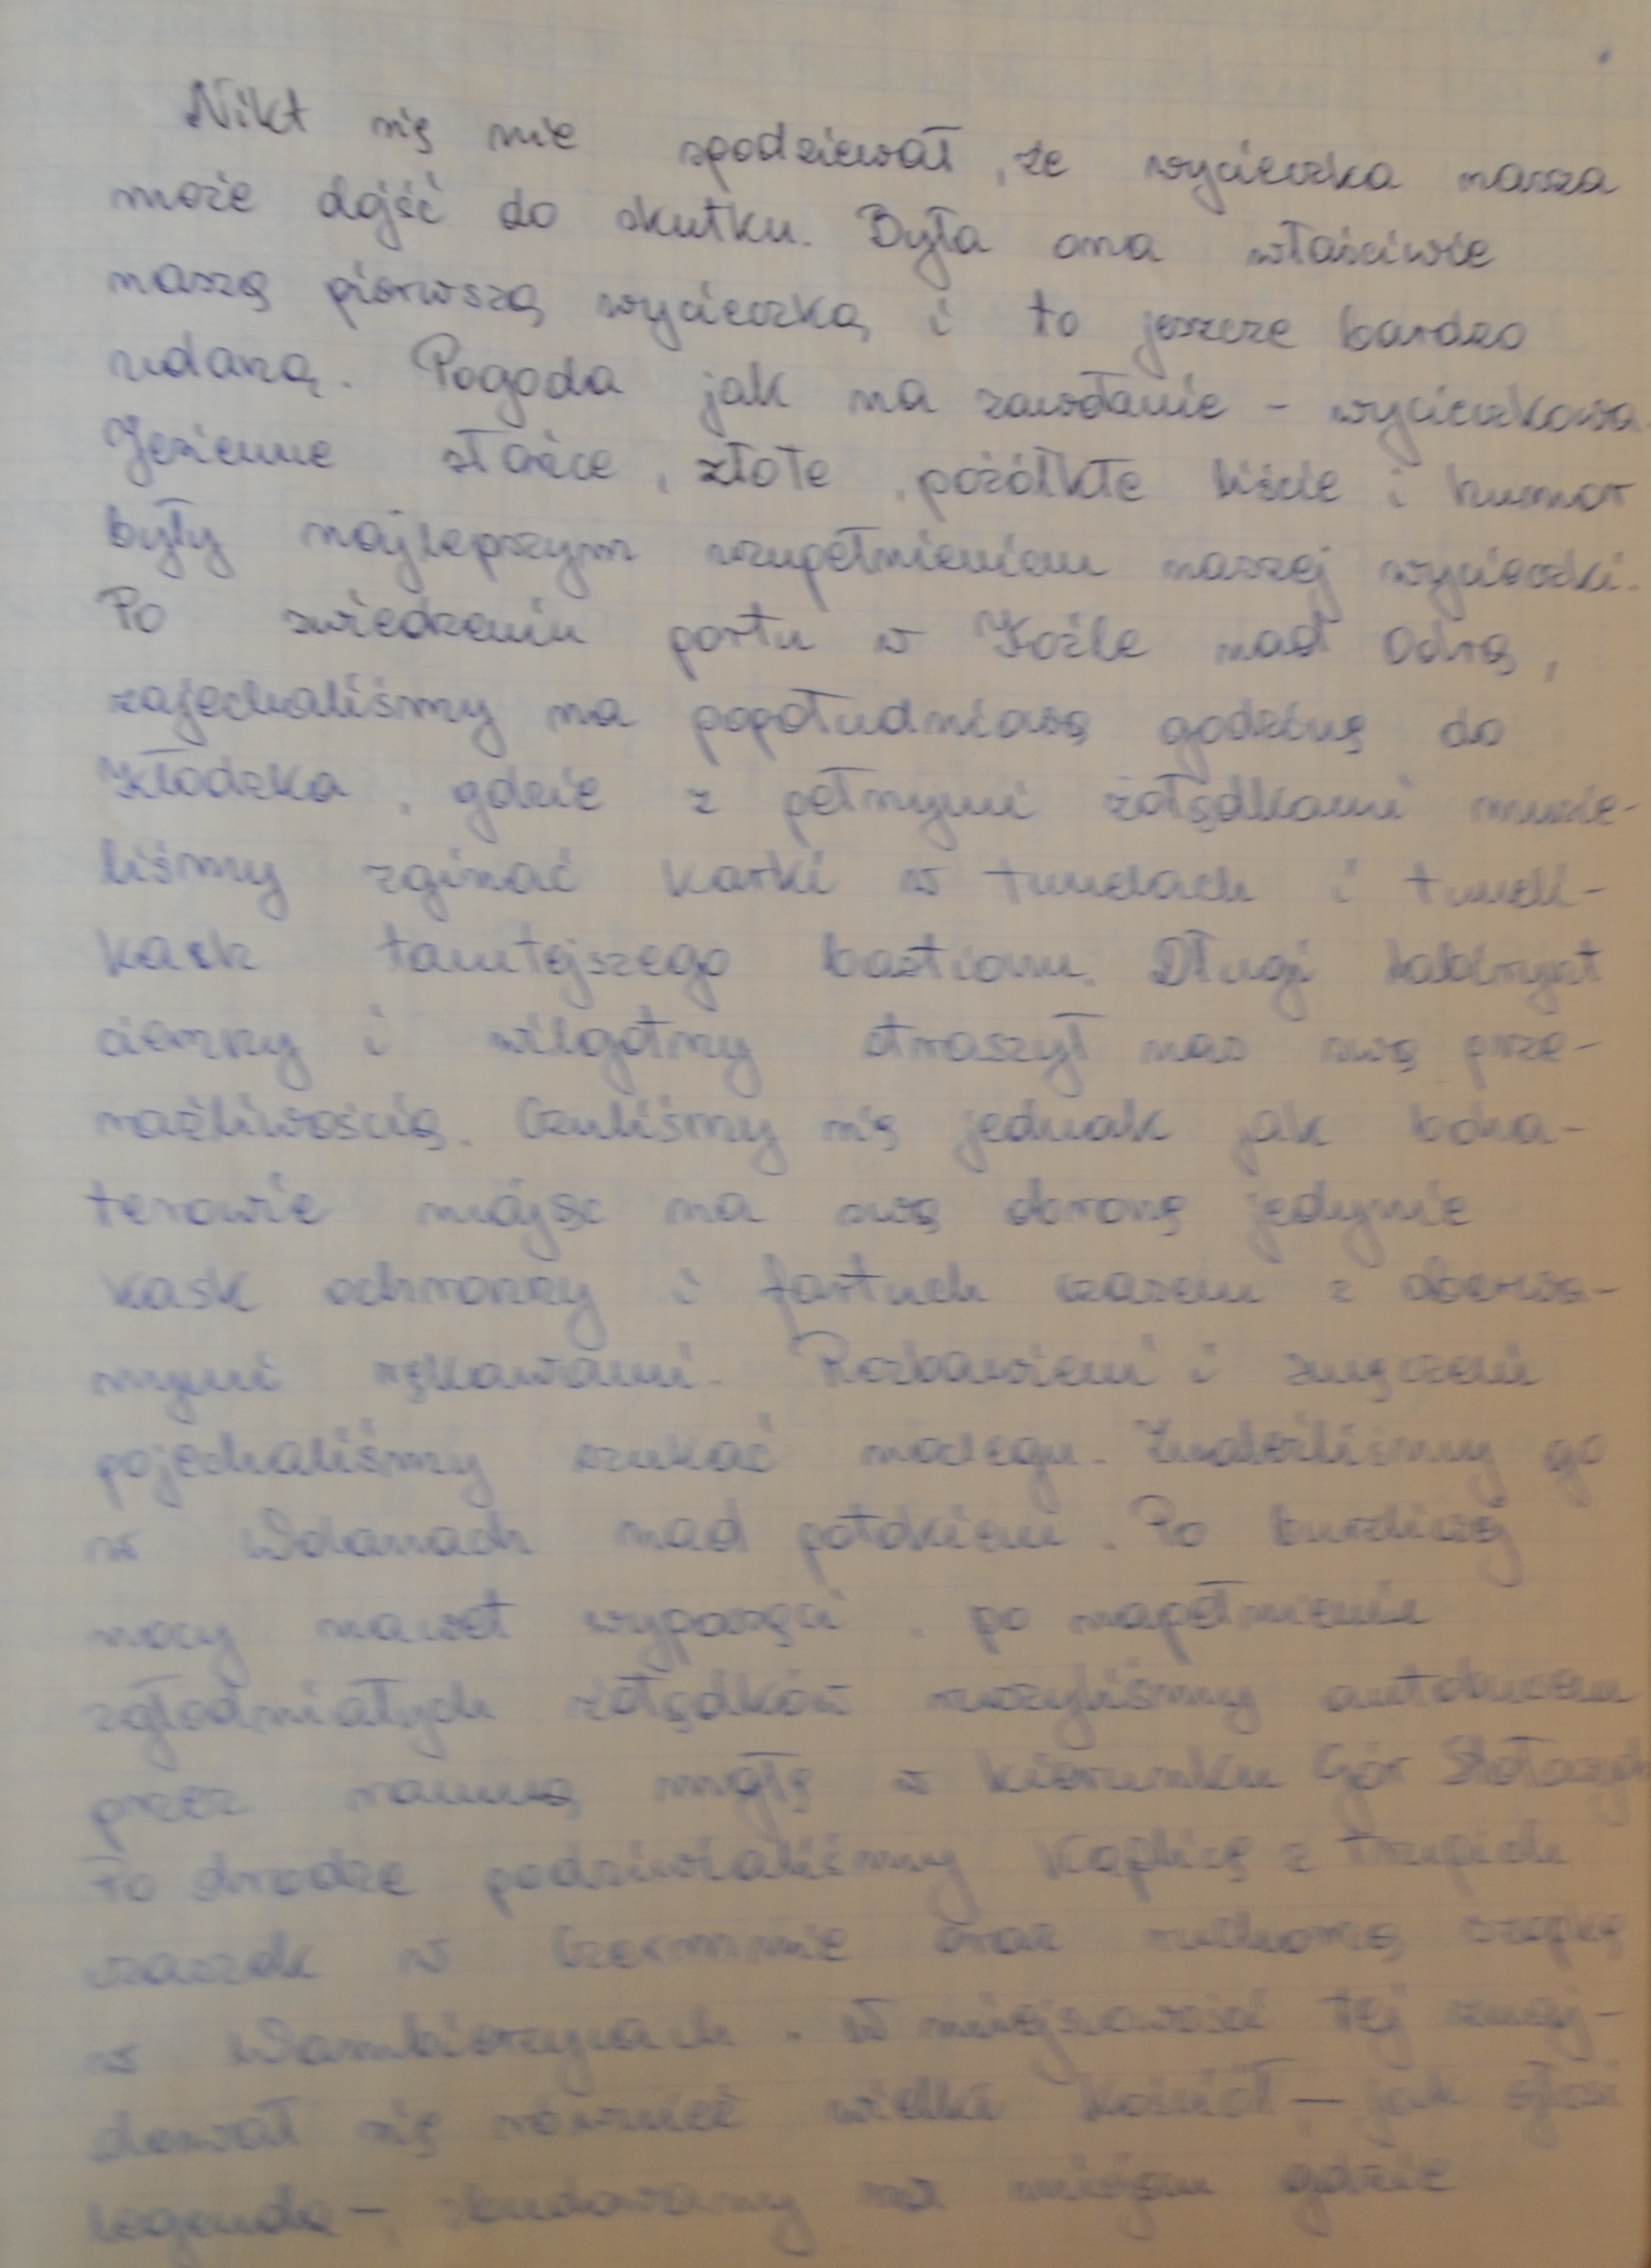 Nikt się nie spodziewał, że wycieczka nasza
może dojść do skutku. Była ona właściwie
naszą pierwszą wycieczką i to jeszcze bardzo
udaną. Pogoda jak na zawołanie - wycieczkowa.
Jesienne słońce, złote, pożółkłe liście i humor
były najlepszym uzupełnieniem naszej wycieczki.
Po zwiedzeniu portu w Koźle nad Odrą,
zajechaliśmy na popołudniową godzinę do
Kłodzka, gdzie z pełnymi żołądkami musie-
liśmy zginać karki w tunelach i tuneli-
kach tamtejszego bastionu. Długi labirynt
ciemny i wilgotny straszył nas swą prze-
raźliwością. Czuliśmy się jednak jak boha-
terowie mając na swą obronę jedynie
kask ochronny i fartuch czasem z oberwa-
nymi rękawami. Rozbawieni i zmęczeni
pojechaliśmy szukać noclegu. Znaleźliśmy go
w nad potokiem. Po burzliwej
nocy nawet wypoczęci, po napełnieniu
zgłodniałych żołądków ruszyliśmy autobusem
przez ranną mgłę w kierunku Gór Stołowych
Po drodze podziwialiśmy Kaplicę z trupich
czaszek w Czermnie oraz ruchomą szopkę
w Wambierzycach. W miejscowości tej znaj-
dował się również wielki kościół, - jak głosi
legenda -, zbudowany na miejscu gdzie